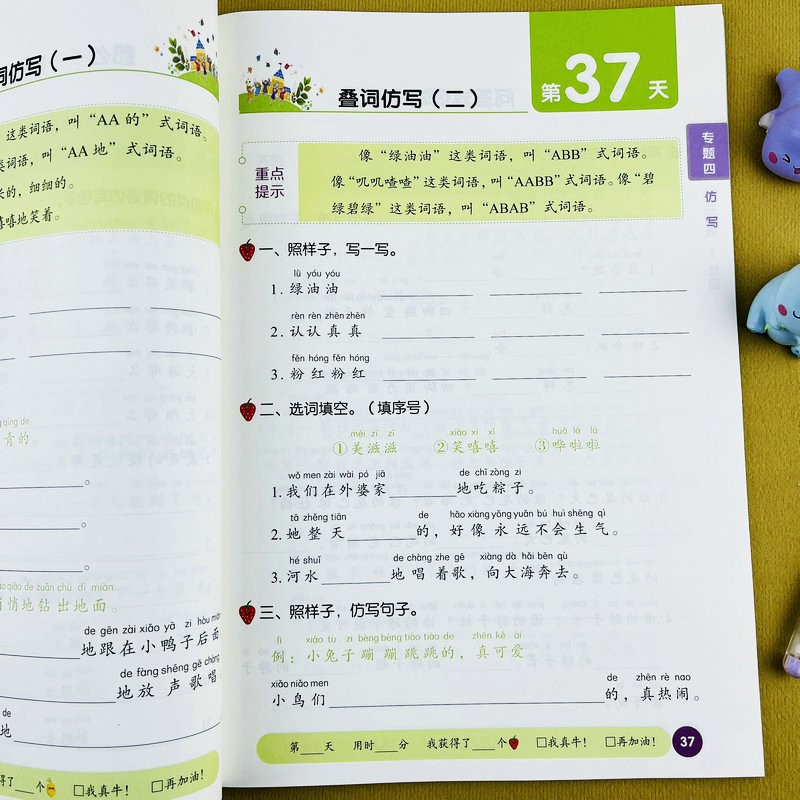 词仿写（一）
这类词语，叫“AA 的”式词语。
类词语，叫“AA 地”式词语。
长的，细细的。
嘻嘻地笑着。
qīng de
青的。
。
。
qiāo qiāo de zuān chū dì miàn
悄悄地钻出地面。
de gēn zài xiǎo yā zi hòu miàn
地跟在小鸭子后面
de fàng shēng gē chàng
地放声歌唱
de
地
得了___个 □我真牛！ □再加油！
叠词仿写（二）
第37天
专题四 仿写
重点提示
像“绿油油”这类词语，叫“ABB”式词语。
像“叽叽喳喳”这类词语，叫“AABB”式词语。像“碧
绿碧绿”这类词语，叫“ABAB”式词语。
一、照样子，写一写。
lǜ yóu yóu
1. 绿油油 ______ ______ ______
rèn rèn zhēn zhēn
2. 认认真真 ______ ______ ______
fěn hóng fěn hóng
3. 粉红粉红 ______ ______ ______
二、选词填空。（填序号）
měi zī zī xiào xī xī huā lā lā
①美滋滋 ②笑嘻嘻 ③哗啦啦
wǒ men zài wài pó jiā de chī zòng zi
1. 我们在外婆家______地吃粽子。
tā zhěng tiān de hǎo xiàng yǒng yuǎn bú huì shēng qì
2. 她整天______的，好像永远不会生气。
hé shuǐ de chàng zhe gē xiàng dà hǎi bēn qù
3. 河水______地唱着歌，向大海奔去。
三、照样子，仿写句子。
lì xiǎo tù zi bèng bèng tiào tiào de zhēn kě ài
例：小兔子蹦蹦跳跳的，真可爱。
xiǎo niǎo men de zhēn rè nao
小鸟们____________的，真热闹。
第___天 用时___分 我获得了___个 □我真牛！ □再加油！
37